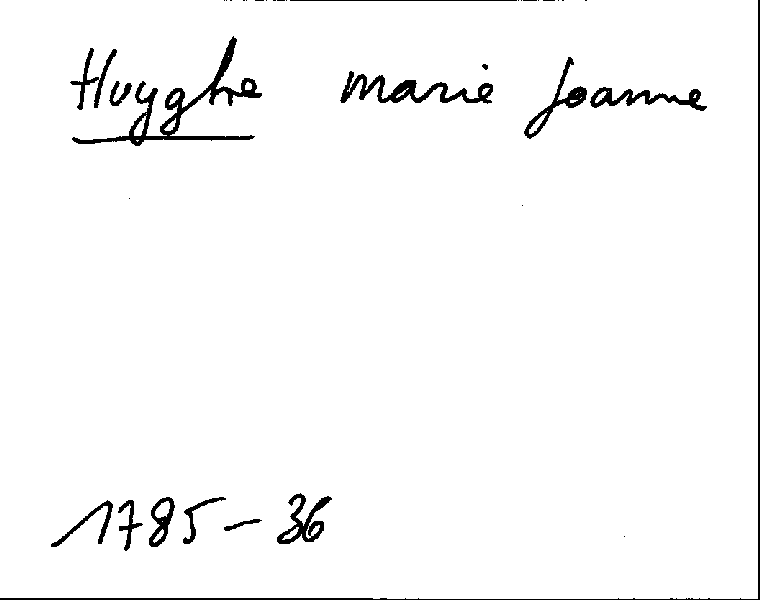 Huyghe marie Joanne
1785-36